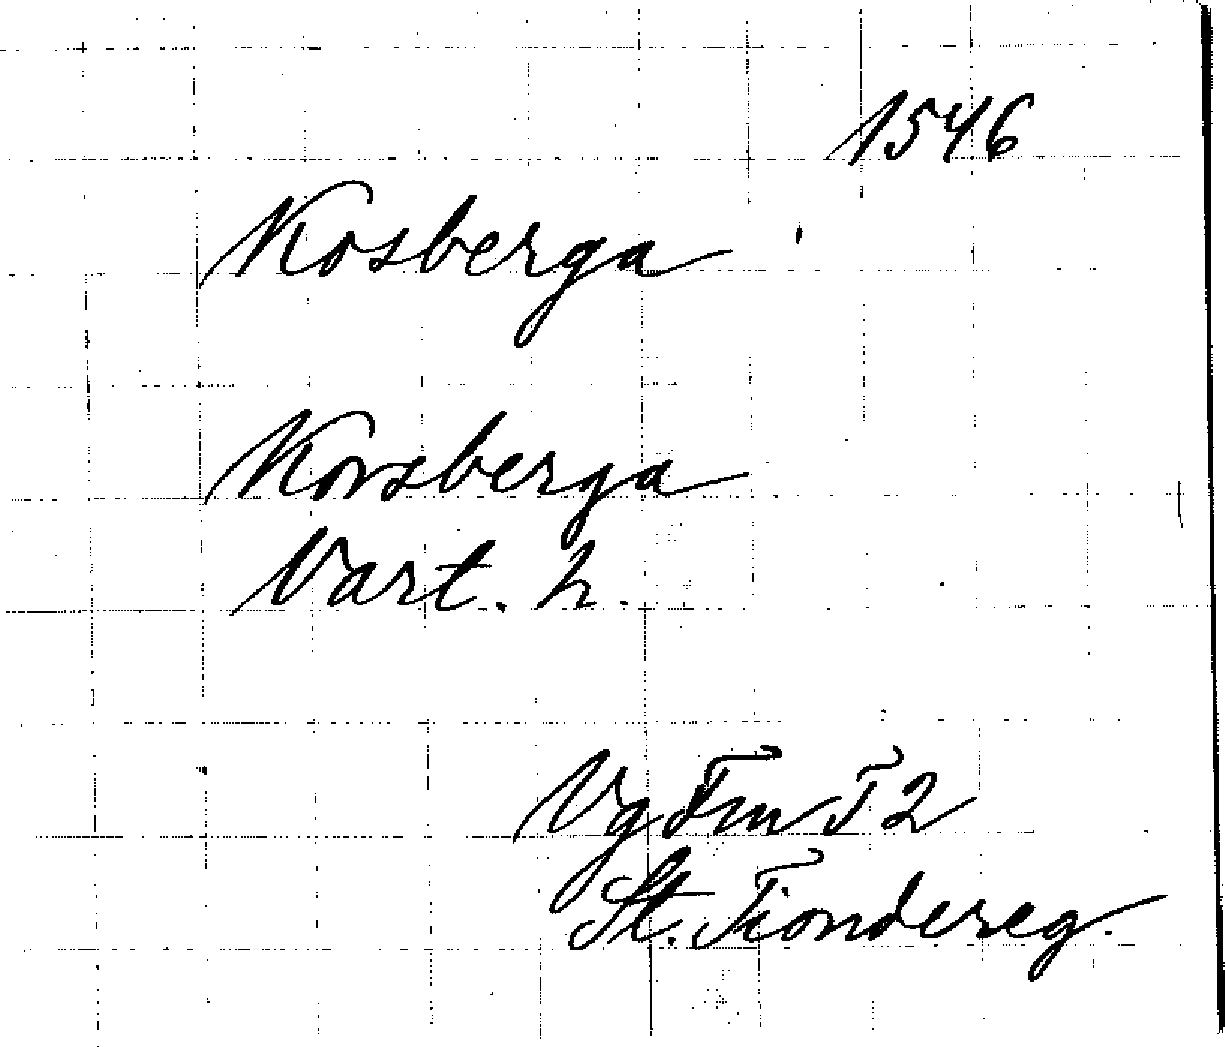 1546
Kosberga
Korsberga
Vart. h.
Vg Fm T2
St. Tiondereg.